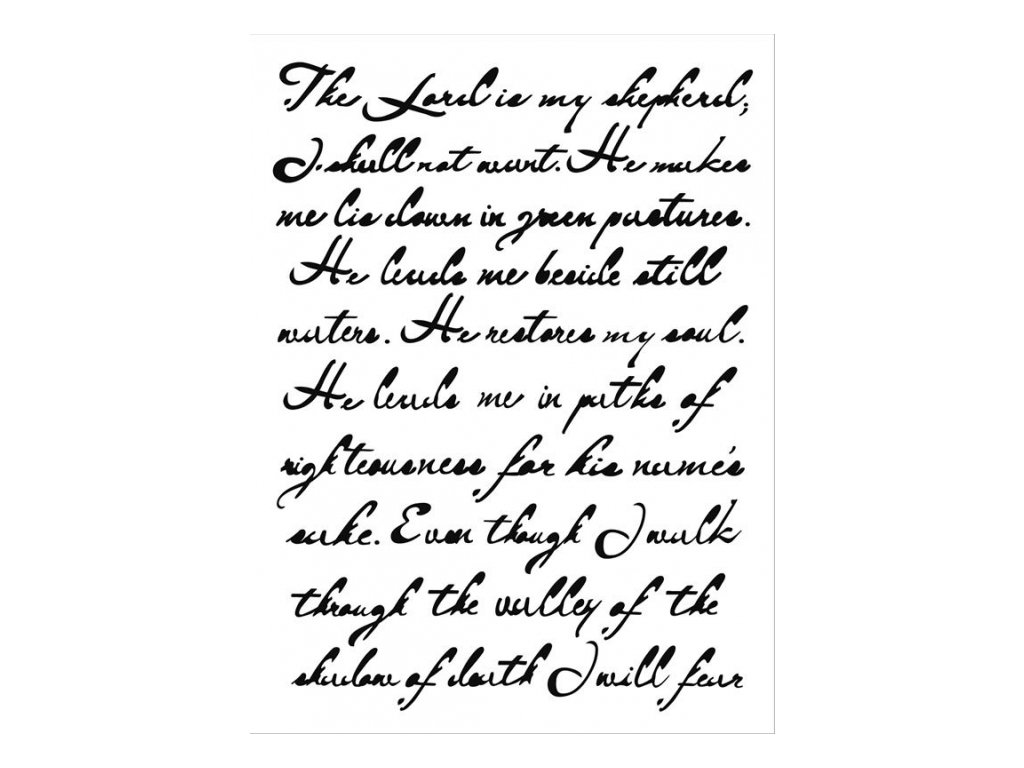 The Lord is my shepherd;
I shall not want. He makes
me lie down in green pastures.
He leads me beside still
waters. He restores my soul.
He leads me in paths of
righteousness for his name's
sake. Even though I walk
through the valley of the
shadow of death I will fear